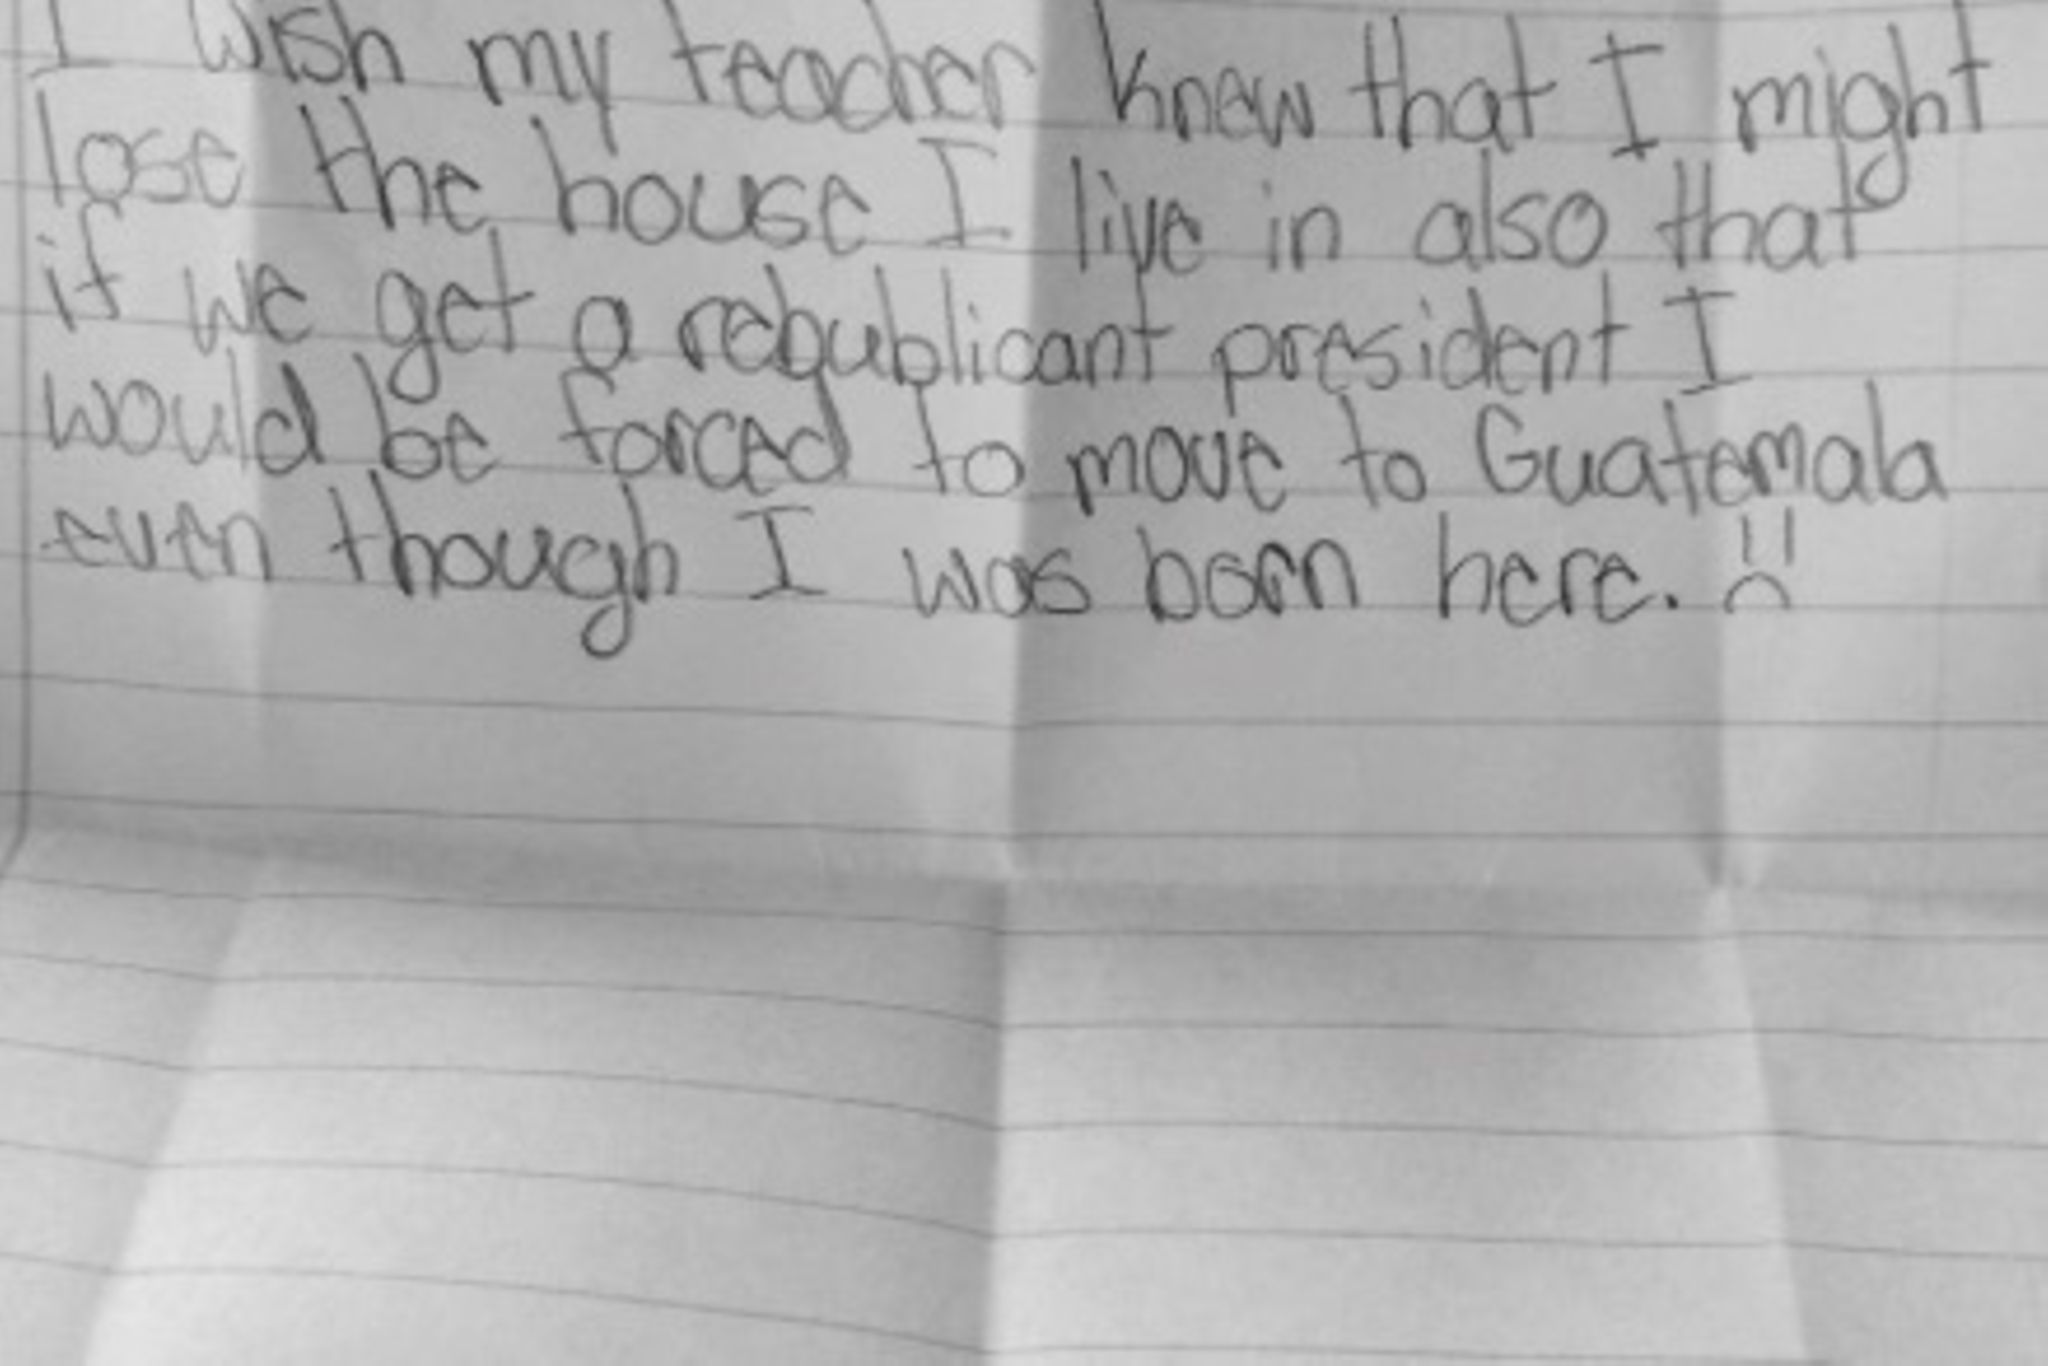 I wish my teacher knew that I might
lose the house I live in also that
if we get a republicant president I
would be forced to move to Guatemala
even though I was born here. :(